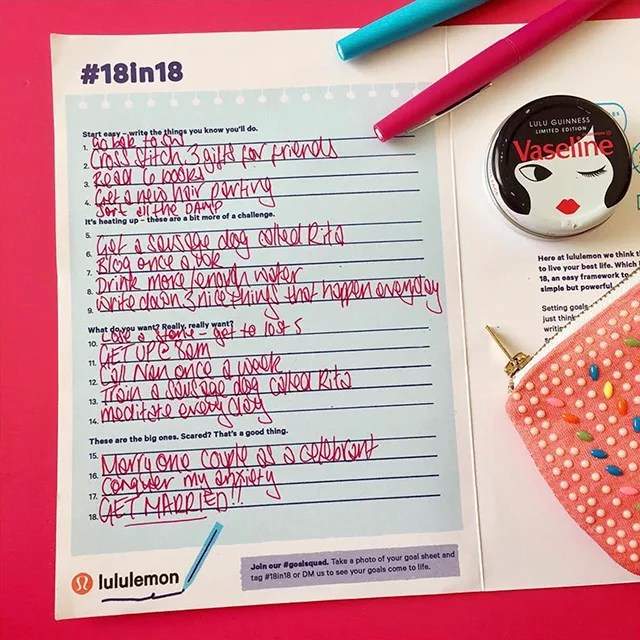 #18in18
Start easy – write the things you know you'll do.
1. Go back to
2. Cross stitch 3 gifts for friends
3. Read 6 books
4. Get a new hair parting
Sort all the DAMP
It's heating up – these are a bit more of a challenge.
5. Get a sausage dog called Rita
6. Blog once a
7. Drink more/enough water
8. Write down 3 nice things that happen everyday
9.
What do you want? Really, really want?
10. Lose a stone – get to 10st 5
11. GET UP @ 8am
12. Call Nan once a week
13. Train a sausage dog called Rita
14. meditate every day
These are the big ones. Scared? That's a good thing.
15. Marry one couple as a celebrant
16. Conquer my anxiety
17. GET MARRIED!!
18.
lululemon
Join our #goalsquad. Take a photo of your goal sheet and
tag #18in18 or DM us to see your goals come to life.
LULU GUINNESS
LIMITED EDITION
Vaseline
Here at lululemon we think
to live your best life. Which
18, an easy framework to
simple but powerful.
Setting goals
just think